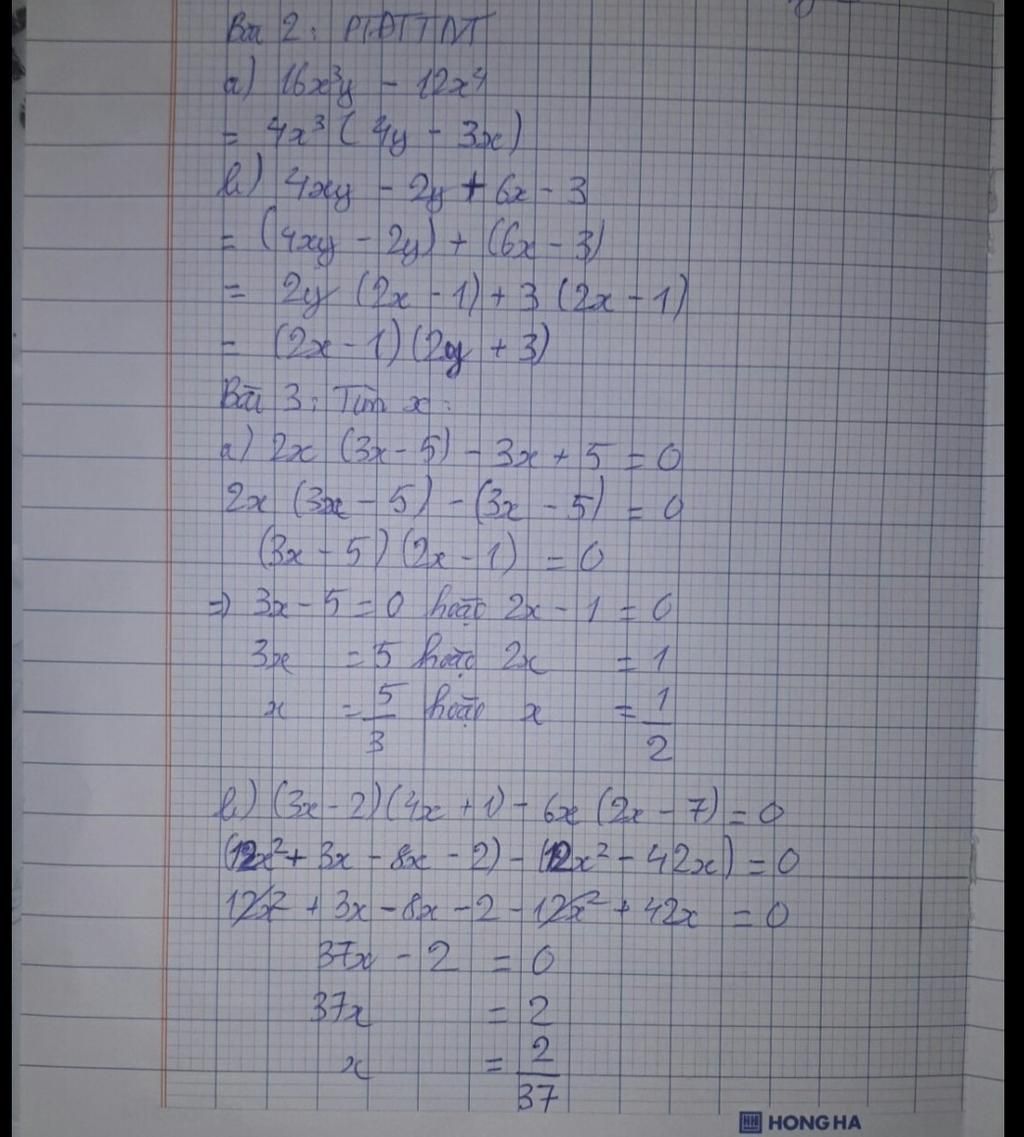 Bài 2: PTĐTTNT
a) 16x³y - 12x⁴
= 4x³ ( 4y - 3x)
b) 4xy - 2y + 6x - 3
= (4xy - 2y) + (6x - 3)
= 2y (2x - 1) + 3 (2x - 1)
= (2x - 1) (2y + 3)
Bài 3: Tìm x:
a) 2x (3x - 5) - 3x + 5 = 0
2x (3x - 5) - (3x - 5) = 0
(3x - 5) (2x - 1) = 0
=> 3x - 5 = 0 hoặc 2x - 1 = 0
3x = 5 hoặc 2x = 1
x = 5/3 hoặc x = 1/2
b) (3x - 2)(4x + 1) - 6x (2x - 7) = 0
(12x² + 3x - 8x - 2) - (12x² - 42x) = 0
12x² + 3x - 8x - 2 - 12x² + 42x = 0
37x - 2 = 0
37x = 2
x = 2/37
HH HONG HA